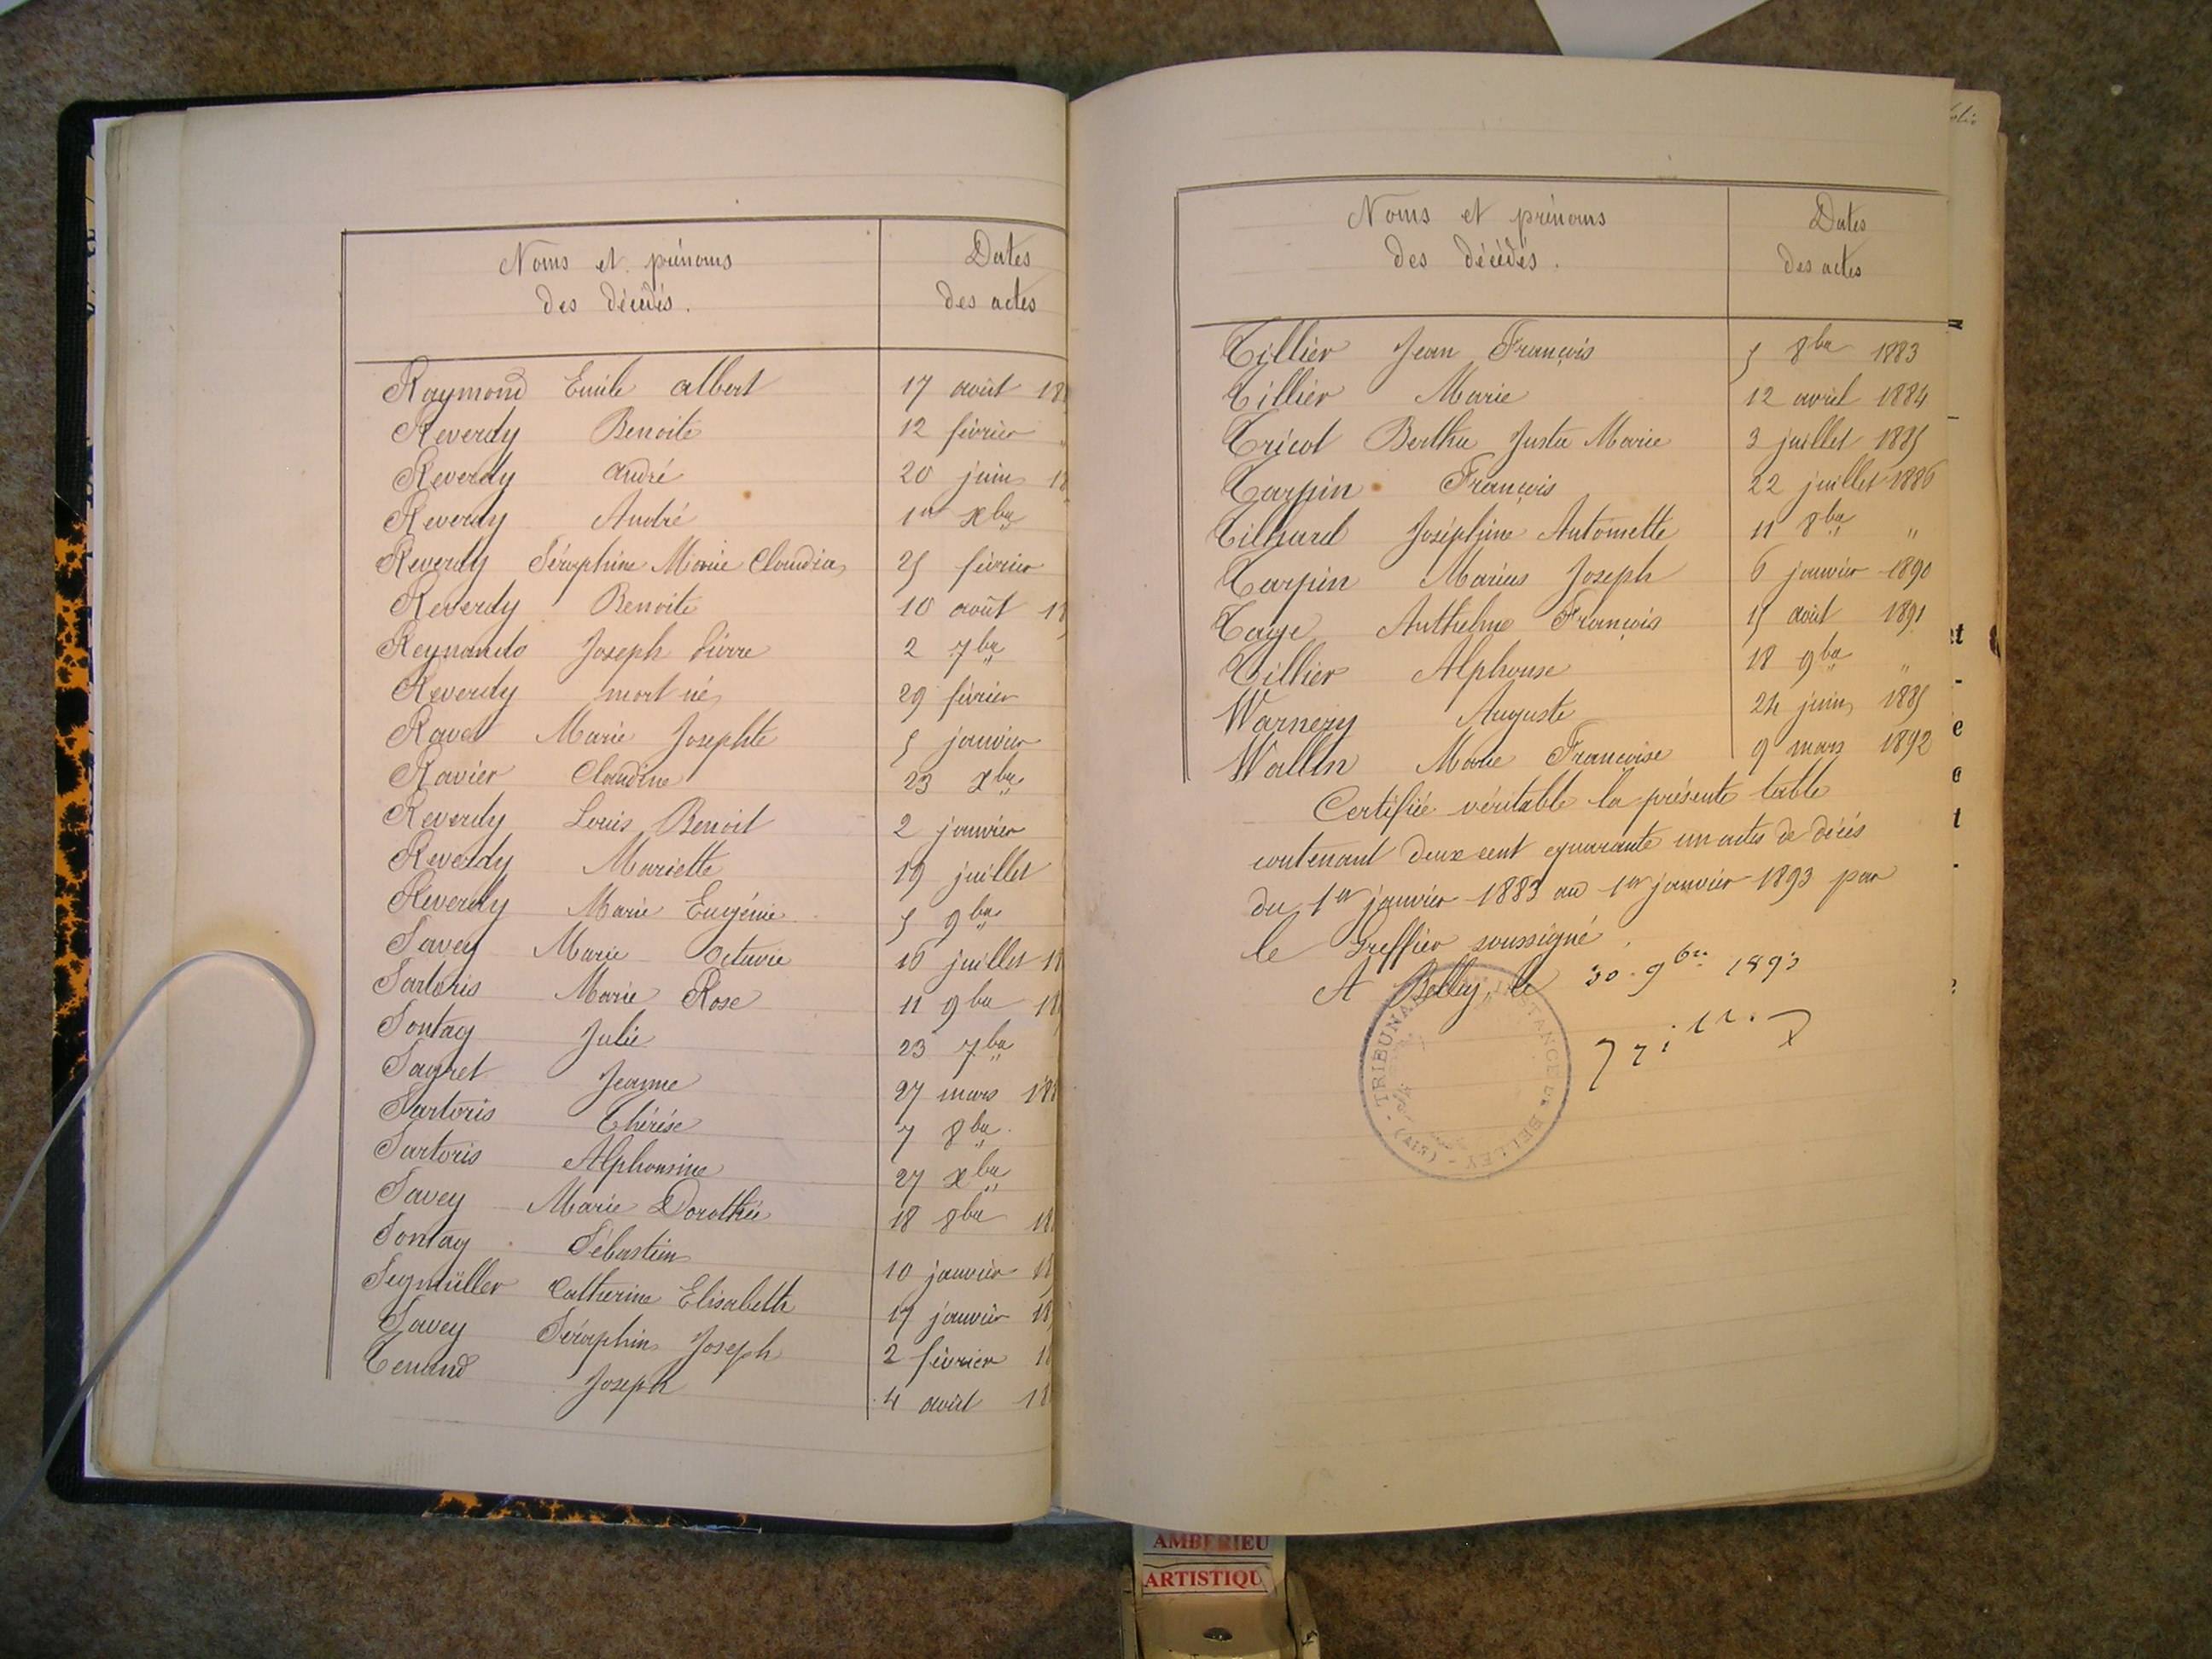 Noms et prénoms Dates
des décédés. des actes
Raymond Emile Albert 17 août 18
Reverdy Benoite 12 février "
Reverdy André 20 juin 18
Reverdy André 1er xbre
Reverdy Séraphine Marie Claudia 25 février
Reverdy Benoite 10 août 18
Reynauds Joseph Pierre 2 7bre
Reverdy mort né 29 février
Ravet Marie Josephte 5 janvier
Ravier Claudine 23 xbre
Reverdy Louis Benoit 2 janvier
Reverdy Mariette 19 juillet
Reverdy Marie Eugénie 5 9bre
Savey Marie Octavie 16 juillet 18
Sartoris Marie Rose 11 9bre 18
Sontag Julie 23 7bre
Sayret Jeanne 27 mars 188
Sartoris Thérèse 7 8bre
Sartoris Alphonsine 27 xbre
Savey Marie Dorothée 18 8bre 18
Sontag Sébastien 10 janvier 18
Seymüller Catherine Elisabeth 17 janvier 18
Savey Séraphin Joseph 2 février 18
Tenand Joseph 4 août 18
folio
Noms et prénoms Dates
des décédés. des actes
Tillier Jean François 5 8bre 1883
Tillier Marie 12 avril 1884
Tricot Berthe Justa Marie 3 juillet 1885
Tarpin François 22 juillet 1886
Tilhard Joséphine Antoinette 11 8bre "
Tarpin Marius Joseph 6 janvier 1890
Taye Anthelme François 15 août 1891
Tillier Alphonse 18 9bre "
Warnery Auguste 24 juin 1885
Wallin Marie Françoise 9 mars 1892
Certifiée véritable la présente table
contenant deux cent quarante un actes de décès
du 1er janvier 1883 au 1er janvier 1893 par
le Greffier soussigné.
A Belley, le 30 9bre 1893
TRIBUNAL INSTANCE DE BELLEY (AIN)
AMBERIEU
ARTISTIQU